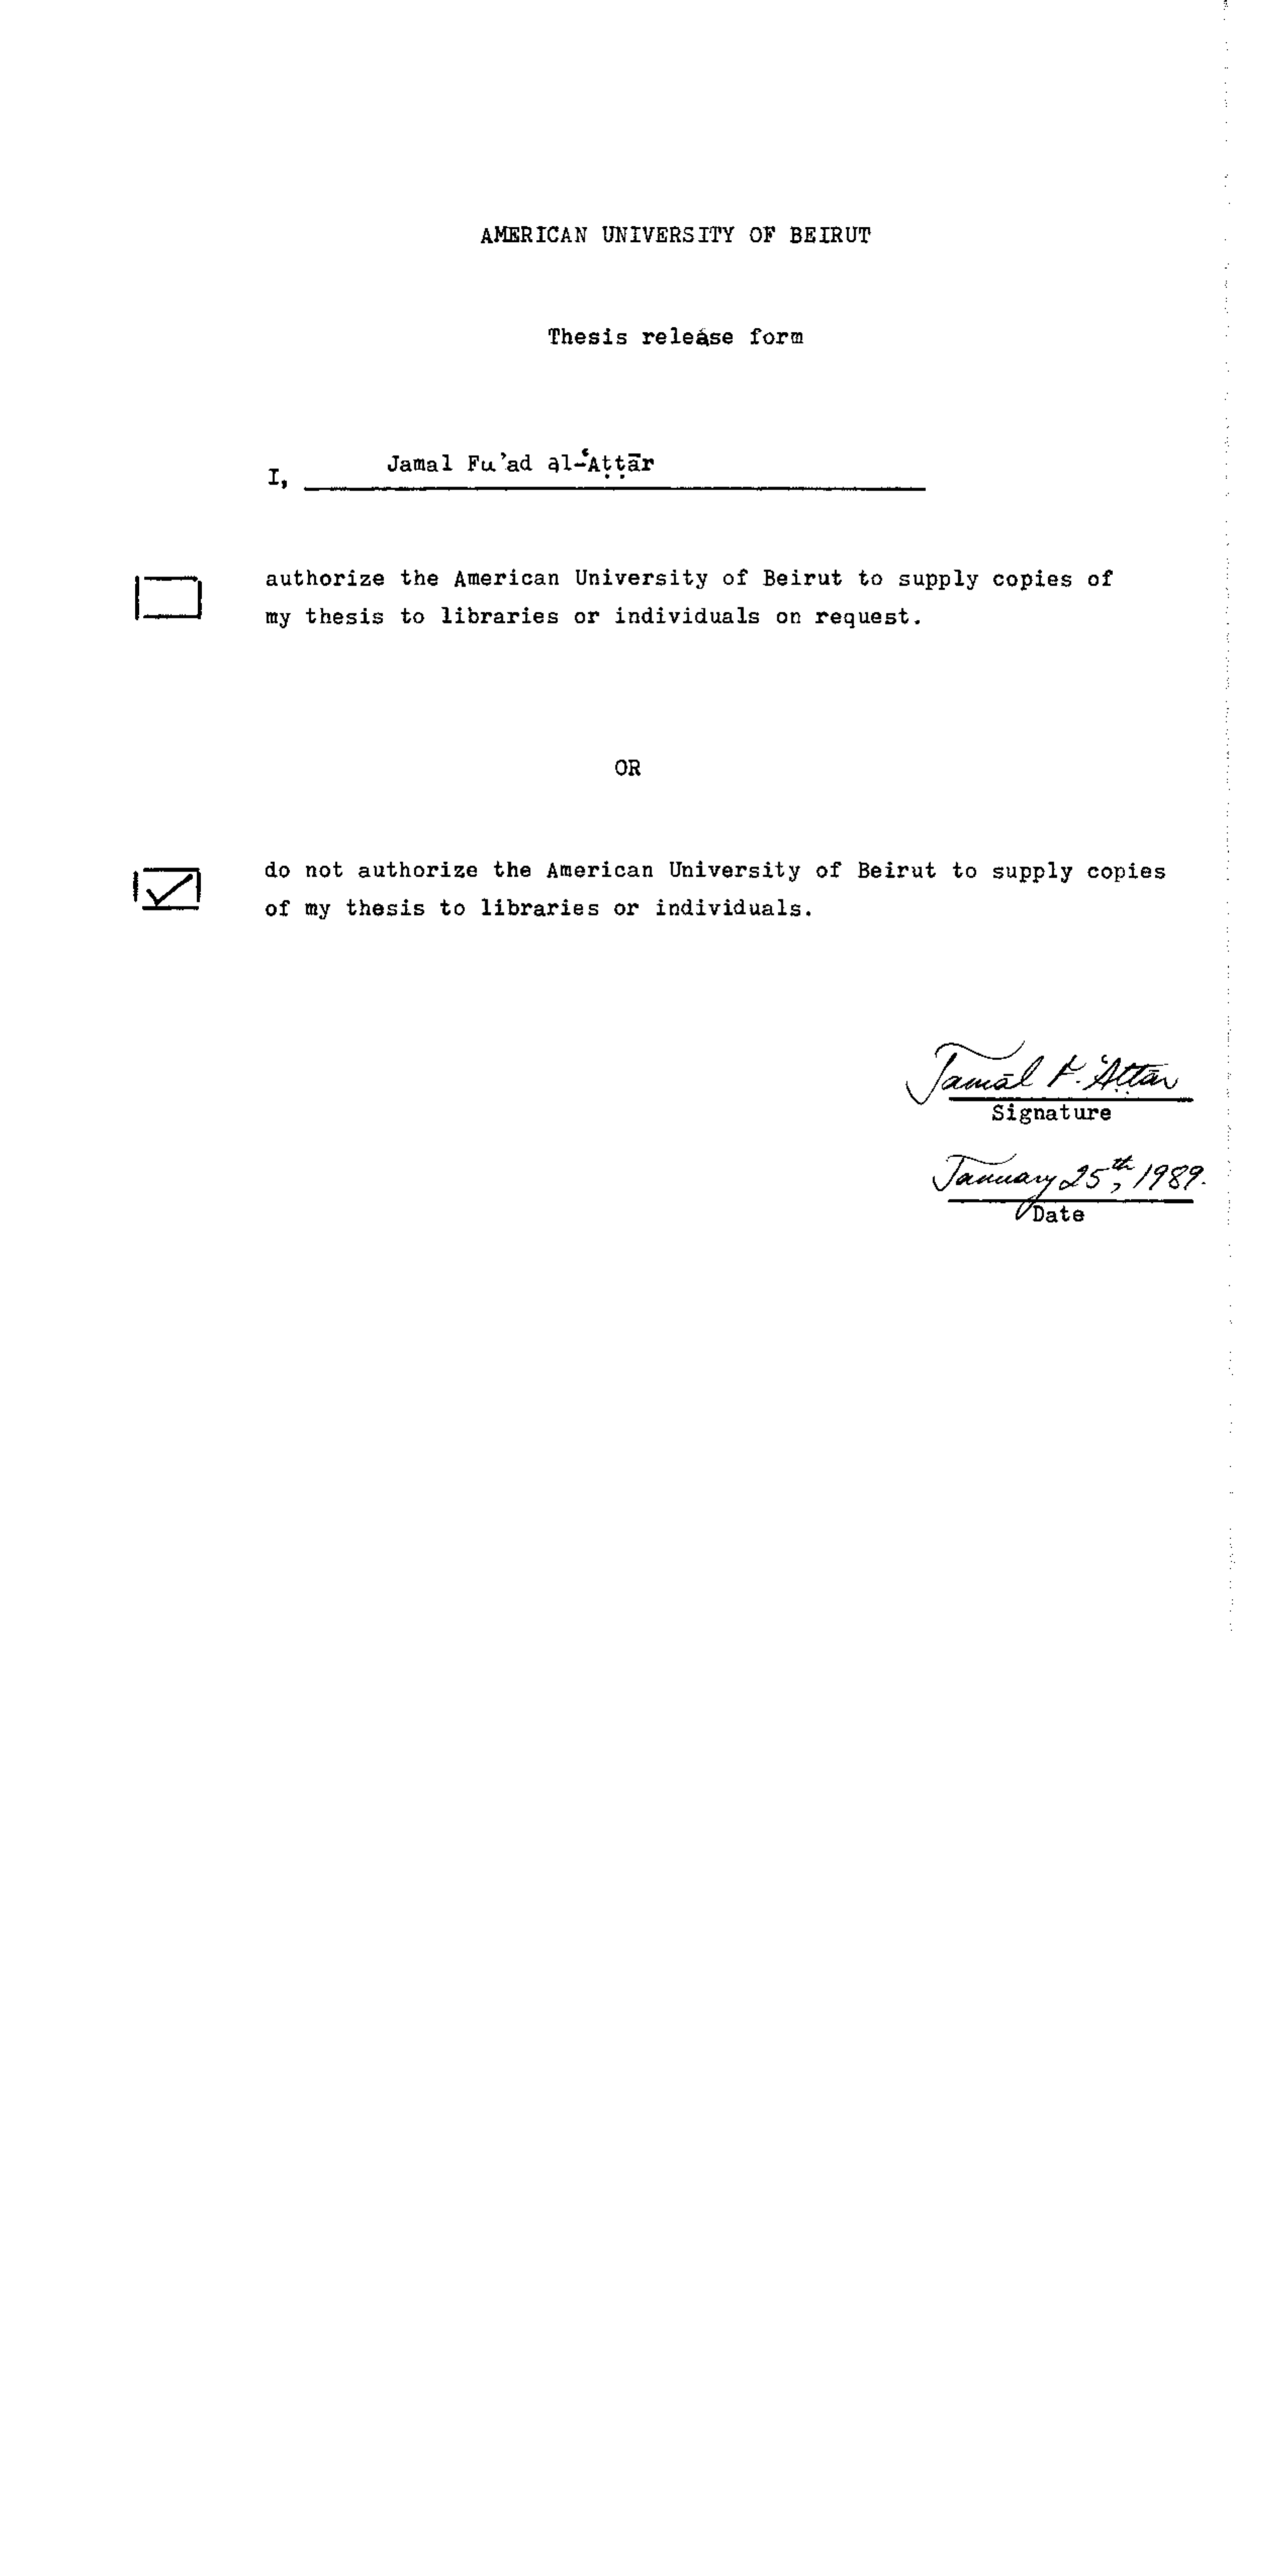 AMERICAN UNIVERSITY OF BEIRUT
Thesis release form
Jamal Fu'ad al-‘Aṭṭār
I,
authorize the American University of Beirut to supply copies of
my thesis to libraries or individuals on request.
OR
do not authorize the American University of Beirut to supply copies
of my thesis to libraries or individuals.
Jamāl F. ‘Aṭṭār
Signature
January 25th, 1989.
Date